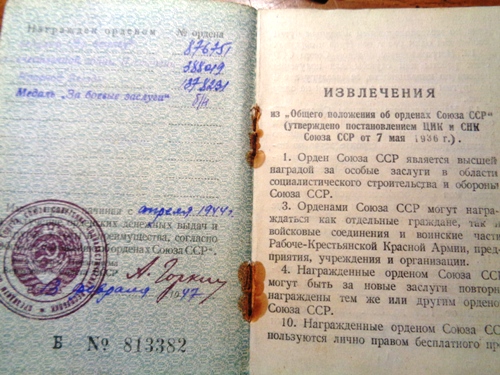 Награжден орденом № ордена
876751
388019
378231
Медаль „За боевые заслуги“ б/н
апреля 1944г.
денежных выдач и
согласно
орденах Союза ССР“
А. Горкин
3 февраля 1947
Б № 813382
ИЗВЛЕЧЕНИЯ
из „Общего положения об орденах Союза ССР“
(утверждено постановлением ЦИК и СНК
Союза ССР от 7 мая 1936 г.).
1. Орден Союза ССР является высшей
наградой за особые заслуги в области
социалистического строительства и обороны
Союза ССР.
3. Орденами Союза ССР могут награ-
ждаться как отдельные граждане, так
войсковые соединения и воинские част
Рабоче-Крестьянской Красной Армии, пред-
приятия, учреждения и организации.
4. Награжденные орденом Союза ССР
могут быть за новые заслуги повторн
награждены тем же или другим орденом
Союза ССР.
10. Награжденные орденом Союза СС
пользуются лично правом бесплатного пр